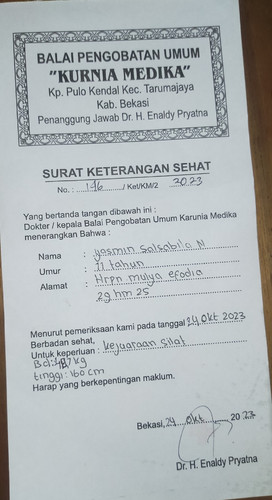 BALAI PENGOBATAN UMUM
"KURNIA MEDIKA"
Kp. Pulo Kendal Kec. Tarumajaya
Kab. Bekasi
Penanggung Jawab Dr. H. Enaldy Pryatna
SURAT KETERANGAN SEHAT
No. : 146 / Ket/KM/2 2023
Yang bertanda tangan dibawah ini :
Dokter / kepala Balai Pengobatan Umum Karunia Medika
menerangkan Bahwa :
Nama : yasmin Salsabila N
Umur : 11 tahun
Alamat : Hrpn mulya
29 hm 25
Menurut pemeriksaan kami pada tanggal 24 Okt 2023
Berbadan sehat,
Untuk keperluan : kejuaraan Silat
kg
tinggi : 160 cm
Harap yang berkepentingan maklum.
Bekasi, 24 Okt 2023
Dr. H. Enaldy Pryatna